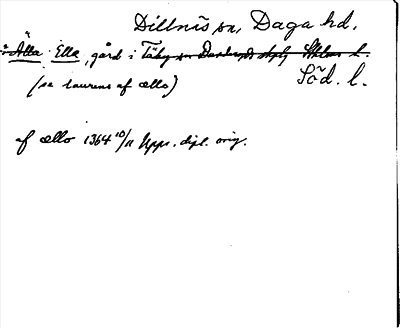 Dillnäs sn, Daga hd.
Älla Ella, gård i Täby sn Danderyds skpl, Sthlms l.
(se laurens af ællo) Söd. l.
af ællo 1364 10/11 Upps. dipl. orig.